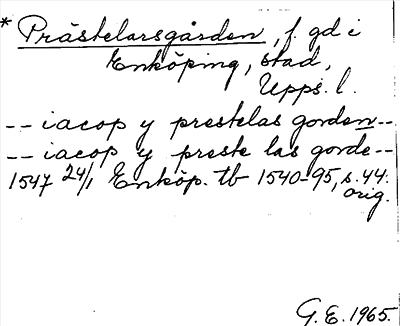 * Prästelarsgården, f. gd i
Enköping, stad,
Upps. l.
-- iacop y prestelas gorden --
-- iacop y preste las gorde --
1547 24/1 Enköp. tb 1540-95, s. 44.
orig.
G. E. 1965.